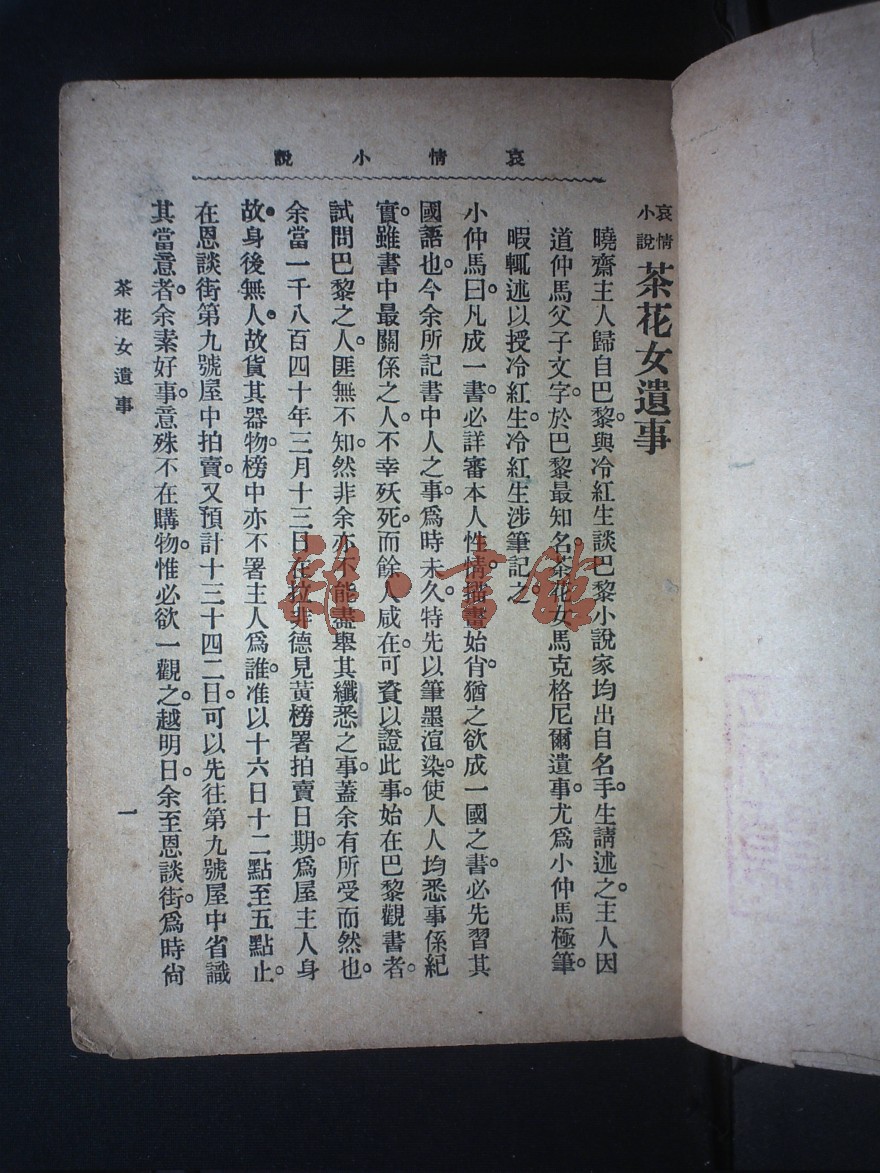 哀情小說
哀情小說 茶花女遺事
曉齋主人歸自巴黎與冷紅生談巴黎小說家均出自名手。生請述之。主人因
道仲馬父子文字。於巴黎最知名。茶花女馬克格尼爾遺事。尤爲小仲馬極筆。
暇輒述以授冷紅生。冷紅生涉筆記之。
小仲馬曰。凡成一書。必詳審本人性情。描畫始肖。猶之欲成一國之書。必先習其
國語也。今余所記書中人之事。爲時未久。特先以筆墨渲染。使人人均悉事係紀
實。雖書中最關係之人。不幸殀死。而餘人咸在。可資以證此事。始在巴黎觀書者。
試問巴黎之人。匪無不知。然非余亦不能盡舉其纖悉之事。蓋余有所受而然也。
余當一千八百四十年三月十三日在拉非德見黃榜署拍賣日期。爲屋主人身
故。身後無人。故貨其器物。榜中亦不署主人爲誰。准以十六日十二點至五點止。
在恩談街第九號屋中拍賣。又預計十三十四二日。可以先往第九號屋中省識
其當意者。余素好事。意殊不在購物。惟必欲一觀之。越明日。余至恩談街。爲時尙
茶花女遺事
一
雒·言館